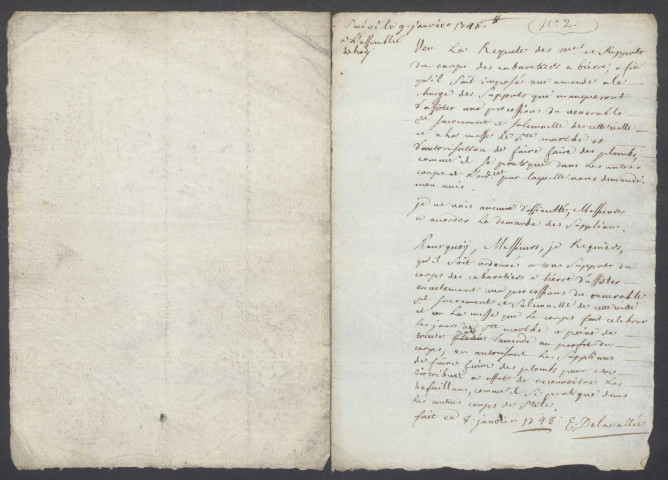 le 9. janvier 1748
N° 2.
a L'assemblée
de loy
Veu La Requete des mes et supports
du corps des cabaretiers a bierre, a fin
qu'il soit imposé une amende a la
charge des supports qui manqueront
d'assister aux processions du venerable
St sacrement et solemnelle de cette ville
et a la messe de Ste marthe et
d'autorisation de faire faire des plombs,
comme il se pratique dans les autres
corps et L'ordce par laquelle vous demandé
mon avis.
je ne vois aucune difficulté, Messieurs
a accorder La demande des supplians.
Pourquoy, Messieurs, je Requiers,
qu'il soit ordonné a tous supports du
corps des cabaretiers a bierre d'assister
exactement aux processions du venerable
St sacrement et solemnelle de cette ville
et a La messe que le corps fait celebrer
Les jours de Ste marthe a peine de
trente d'amende au profit du
corps, en autorisant Les supplians
de faire faire des plombs pour etre
distribués a effet de reconnoitre Les
defaillans, comme il se pratique dans
Les autres corps de stile.
fait ce 8. janvier 1748. E. Delavallée